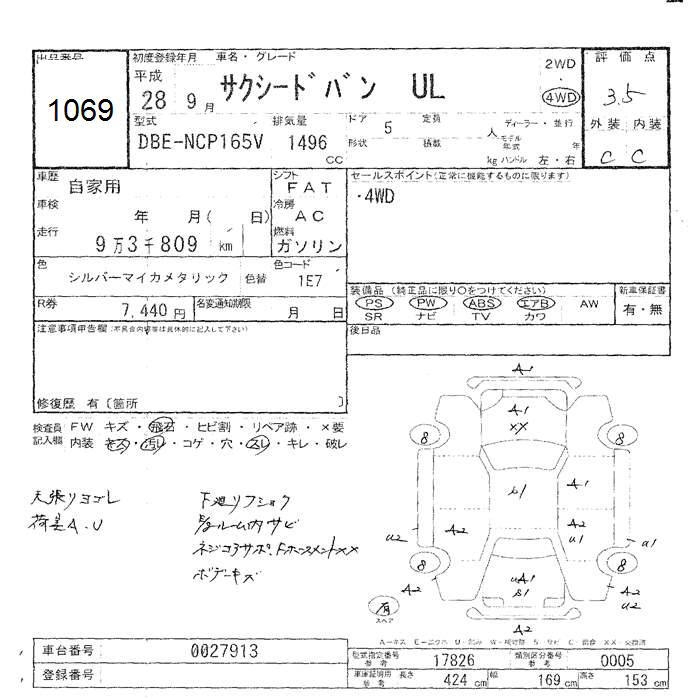 出品番号
1069
初度登録年月 車名・グレード
平成
28 9月
サクシードバン UL
2WD
・
4WD
評価点
3.5
外装 内装
C C
型式 排気量
DBE-NCP165V 1496
CC
ドア 5 定員 人
形状 積載 kg
ディーラー・並行
モデル年式 年
ハンドル 左・右
車歴 自家用
シフト FAT
車検 年 月( 日)
冷房 AC
走行 9万3千809 km
燃料 ガソリン
セールスポイント(正常に機能するものに限ります)
・4WD
色 シルバーマイカメタリック 色替
色コード 1E7
R券 7,440円 名変通知期限 月 日
装備品(純正品に限り○をつけてください)
PS PW ABS エアB AW
SR ナビ TV カワ
新車保証書
有・無
注意事項申告欄(不具合内容等は具体的に記入して下さい)
後日品
修復歴 有〔箇所 〕
検査員 FW キズ・飛石・ヒビ割・リペア跡・×要
記入欄 内装 キズ・汚れ・コゲ・穴・スレ・キレ・破レ
天張リヨゴレ
荷室A.U
下廻リフショク
ルーム内サビ
ネジコアサポ.
XX
ボデーキズ
A1
A1
XX
8 8
A1
A2 A2
U1
U2 U1
8 8
A2 A2
U2
UA1
S1
A2
有
スペア
A-キズ E-エクボ U-凹み
車台番号 0027913
登録番号
型式指定番号 参考 17826 類別区分番号 参考 0005
車庫証明用 参考 長さ 424 cm 幅 169 cm 高さ 153 cm